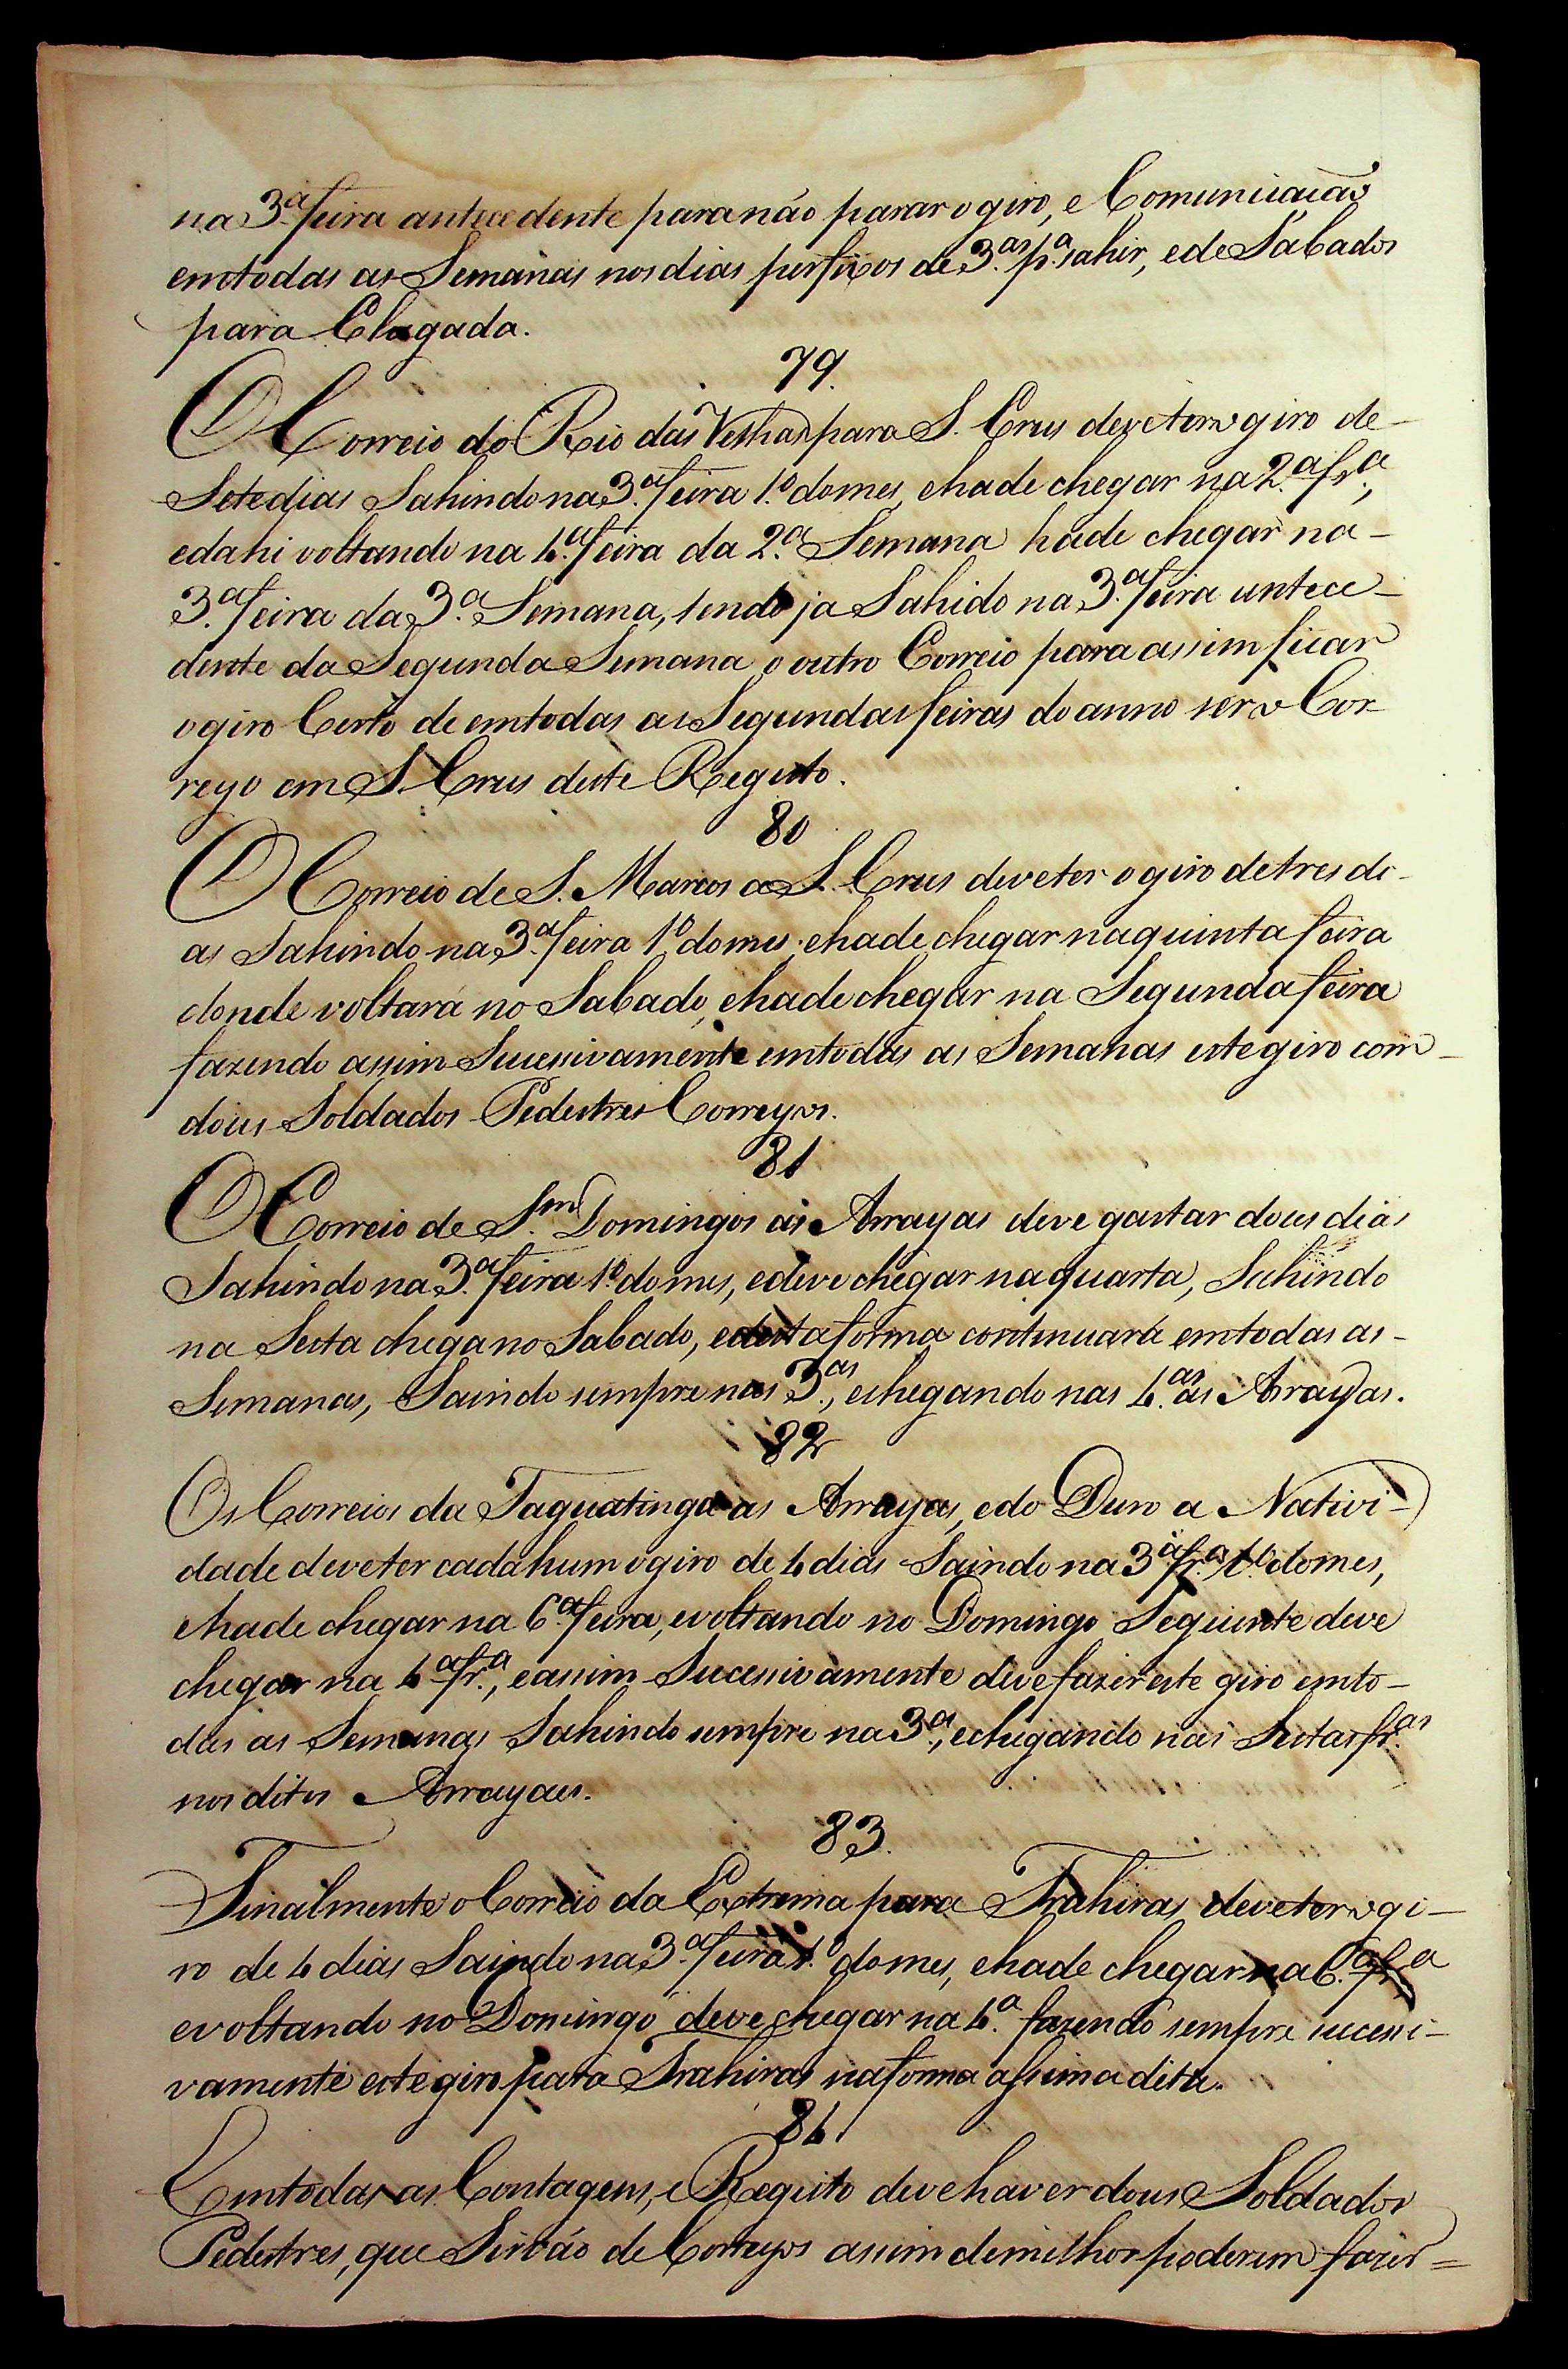 na 3.ª feira antecedente para não parar o giro, e Comunicação
em todas as Semanas nos dias perfixos de 3.as p.ª sahir, e de Sabados
para Chegada.
79.
O Correio do Rio das Velhas para S. Crus deve ter o giro de
Sete dias Sahindo na 3.ª feira 1.º do mes, e hade chegar na 2.ª fr.ª,
e dahi voltando na 4.ª feira da 2.ª Semana hade chegar na
3.ª feira da 3.ª Semana, tendo ja Sahido na 3.ª feira antece-
dente da Segunda Semana o outro Correio para assim ficar
o giro Certo de em todas as Segundas feiras do anno ser o Cor-
reyo em S. Crus deste Registo.
80
O Correio de S. Marcos a S. Crus deve ter o giro de tres di-
as Sahindo na 3.ª feira 1.º do mes, e hade chegar na quinta feira
donde voltará no Sabado, e hade chegar na Segunda feira
fazendo assim Sucessivamente em todas as Semanas este giro com
dous Soldados Pedestres Correyos.
81
O Correio de S.m Domingos ás Arrayas deve gastar dous dias
Sahindo na 3.ª feira 1.º do mes, e deve chegar na quarta, Sahindo
na Sesta chega no Sabado, e desta forma continuará em todas as
Semanas, Saindo sempre nas 3.as, e chegando nas 4.as ás Arrayas.
82
Os Correios da Taguatinga as Arrayas, e do Duro a Nativi-
dade deve ter cada hum o giro de 4 dias Saindo na 3ª fr.ª 1.º do mes,
e hade chegar na 6.ª feira, e voltando no Domingo Seguinte deve
chegar na 4.ª fr.ª, e assim Sucessivamente deve fazer este giro em to-
das as Semanas Sahindo sempre na 3.ª, e chegando nas Sestas fr.as
nos ditos Arrayaes.
83.
Finalmente o Correio da Extrema para Trahiras deve ter o gi-
ro de 4 dias Saindo na 3.ª feira 1.º do mes, e hade chegar na 6.ª fr.ª
e voltando no Domingo deve chegar na 4.ª fazendo sempre sucessi-
vamente este giro para Trahiras na forma assima dita.
84
Em todas as Contagens, e Registo deve haver dous Soldados
Pedestres, que Sirvão de Correyos assim de milhor poderem fazer=